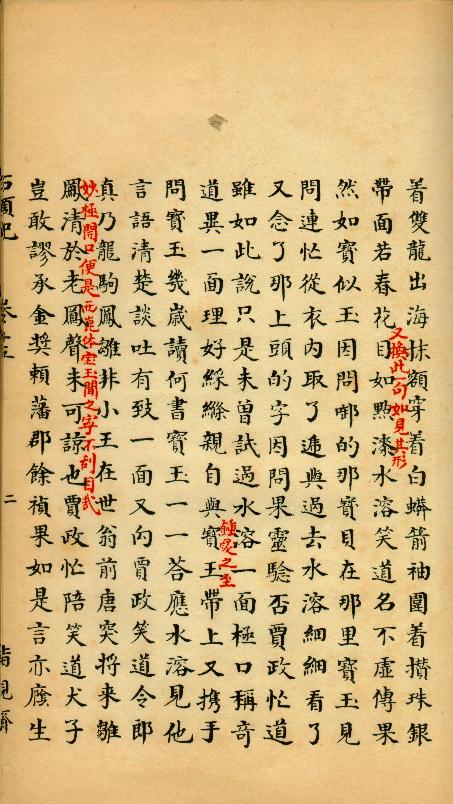 着雙龍出海抹額穿着白蟒箭袖圍着攢珠銀
帶面若春花目如點漆水溶笑道名不虛傳果
又換此一句如見其形
然如寶似玉因問啣的那寶貝在那里寶玉見
問連忙從衣内取了遞與過去水溶細細看了
又念了那上頭的字因問果靈驗否賈政忙道
雖如此說只是未曾試過水溶一面極口稱奇
道異一面理好綵縧親自與寶玉帶上又携手
鍾愛之至
問寶玉幾歲讀何書寶玉一一荅應水溶見他
言語清楚談吐有致一面又向賈政笑道令郎
真乃龍駒鳳雛非小王在世翁前唐突将来雛
妙極開口便是西崑体宝玉聞之寧不刮目哉
鳳清於老鳳聲未可諒也賈政忙陪笑道犬子
豈敢謬承金奬頼藩郡餘禎果如是言亦廕生
石頭記
二
脂硯齋